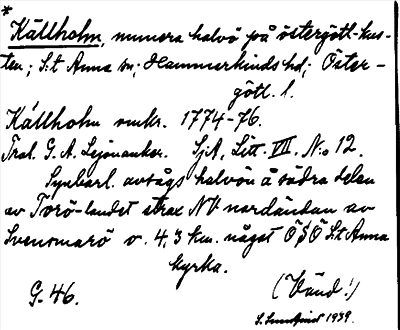 *
Källholm, numera halvö på östergötl-kus-
ten; S:t Anna sn; Hammarkinds hd; Öster-
götl. l.
Kállholm omkr. 1774-76.
Trol. G. A. Lejonanker. SjA, Litt. VII. N:o 12.
Synbarl. avsågs halvön å södra delen
av Torö-landet strax NV nordändan av
Svensmarö v. 4,3 km. något ÖSÖ S:t Anna
kyrka.
G. 46. (Vänd!)
S. Lundqvist 1939.